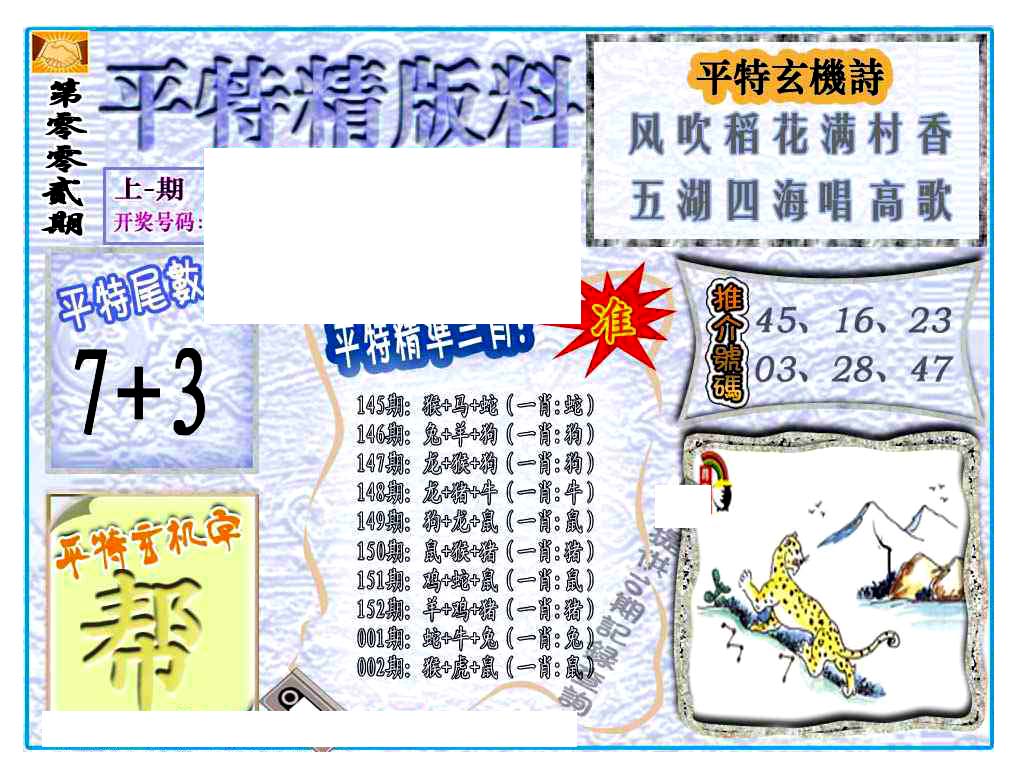 第零零贰期
平特精版料
上-期
开奖号码:
平特玄機詩
风吹稻花满村香
五湖四海唱高歌
平特尾數
7+3
平特精準三肖!
准
推介號碼
45、16、23
03、28、47
145期: 猴+马+蛇 (一肖:蛇)
146期: 兔+羊+狗 (一肖:狗)
147期: 龙+猴+狗 (一肖:狗)
148期: 龙+猪+牛 (一肖:牛)
149期: 狗+龙+鼠 (一肖:鼠)
150期: 鼠+猴+猪 (一肖:猪)
151期: 鸡+蛇+鼠 (一肖:鼠)
152期: 羊+鸡+猪 (一肖:猪)
001期: 蛇+牛+兔 (一肖:兔)
002期: 猴+虎+鼠 (一肖:鼠)
平特玄机字
帮
期記錄查詢